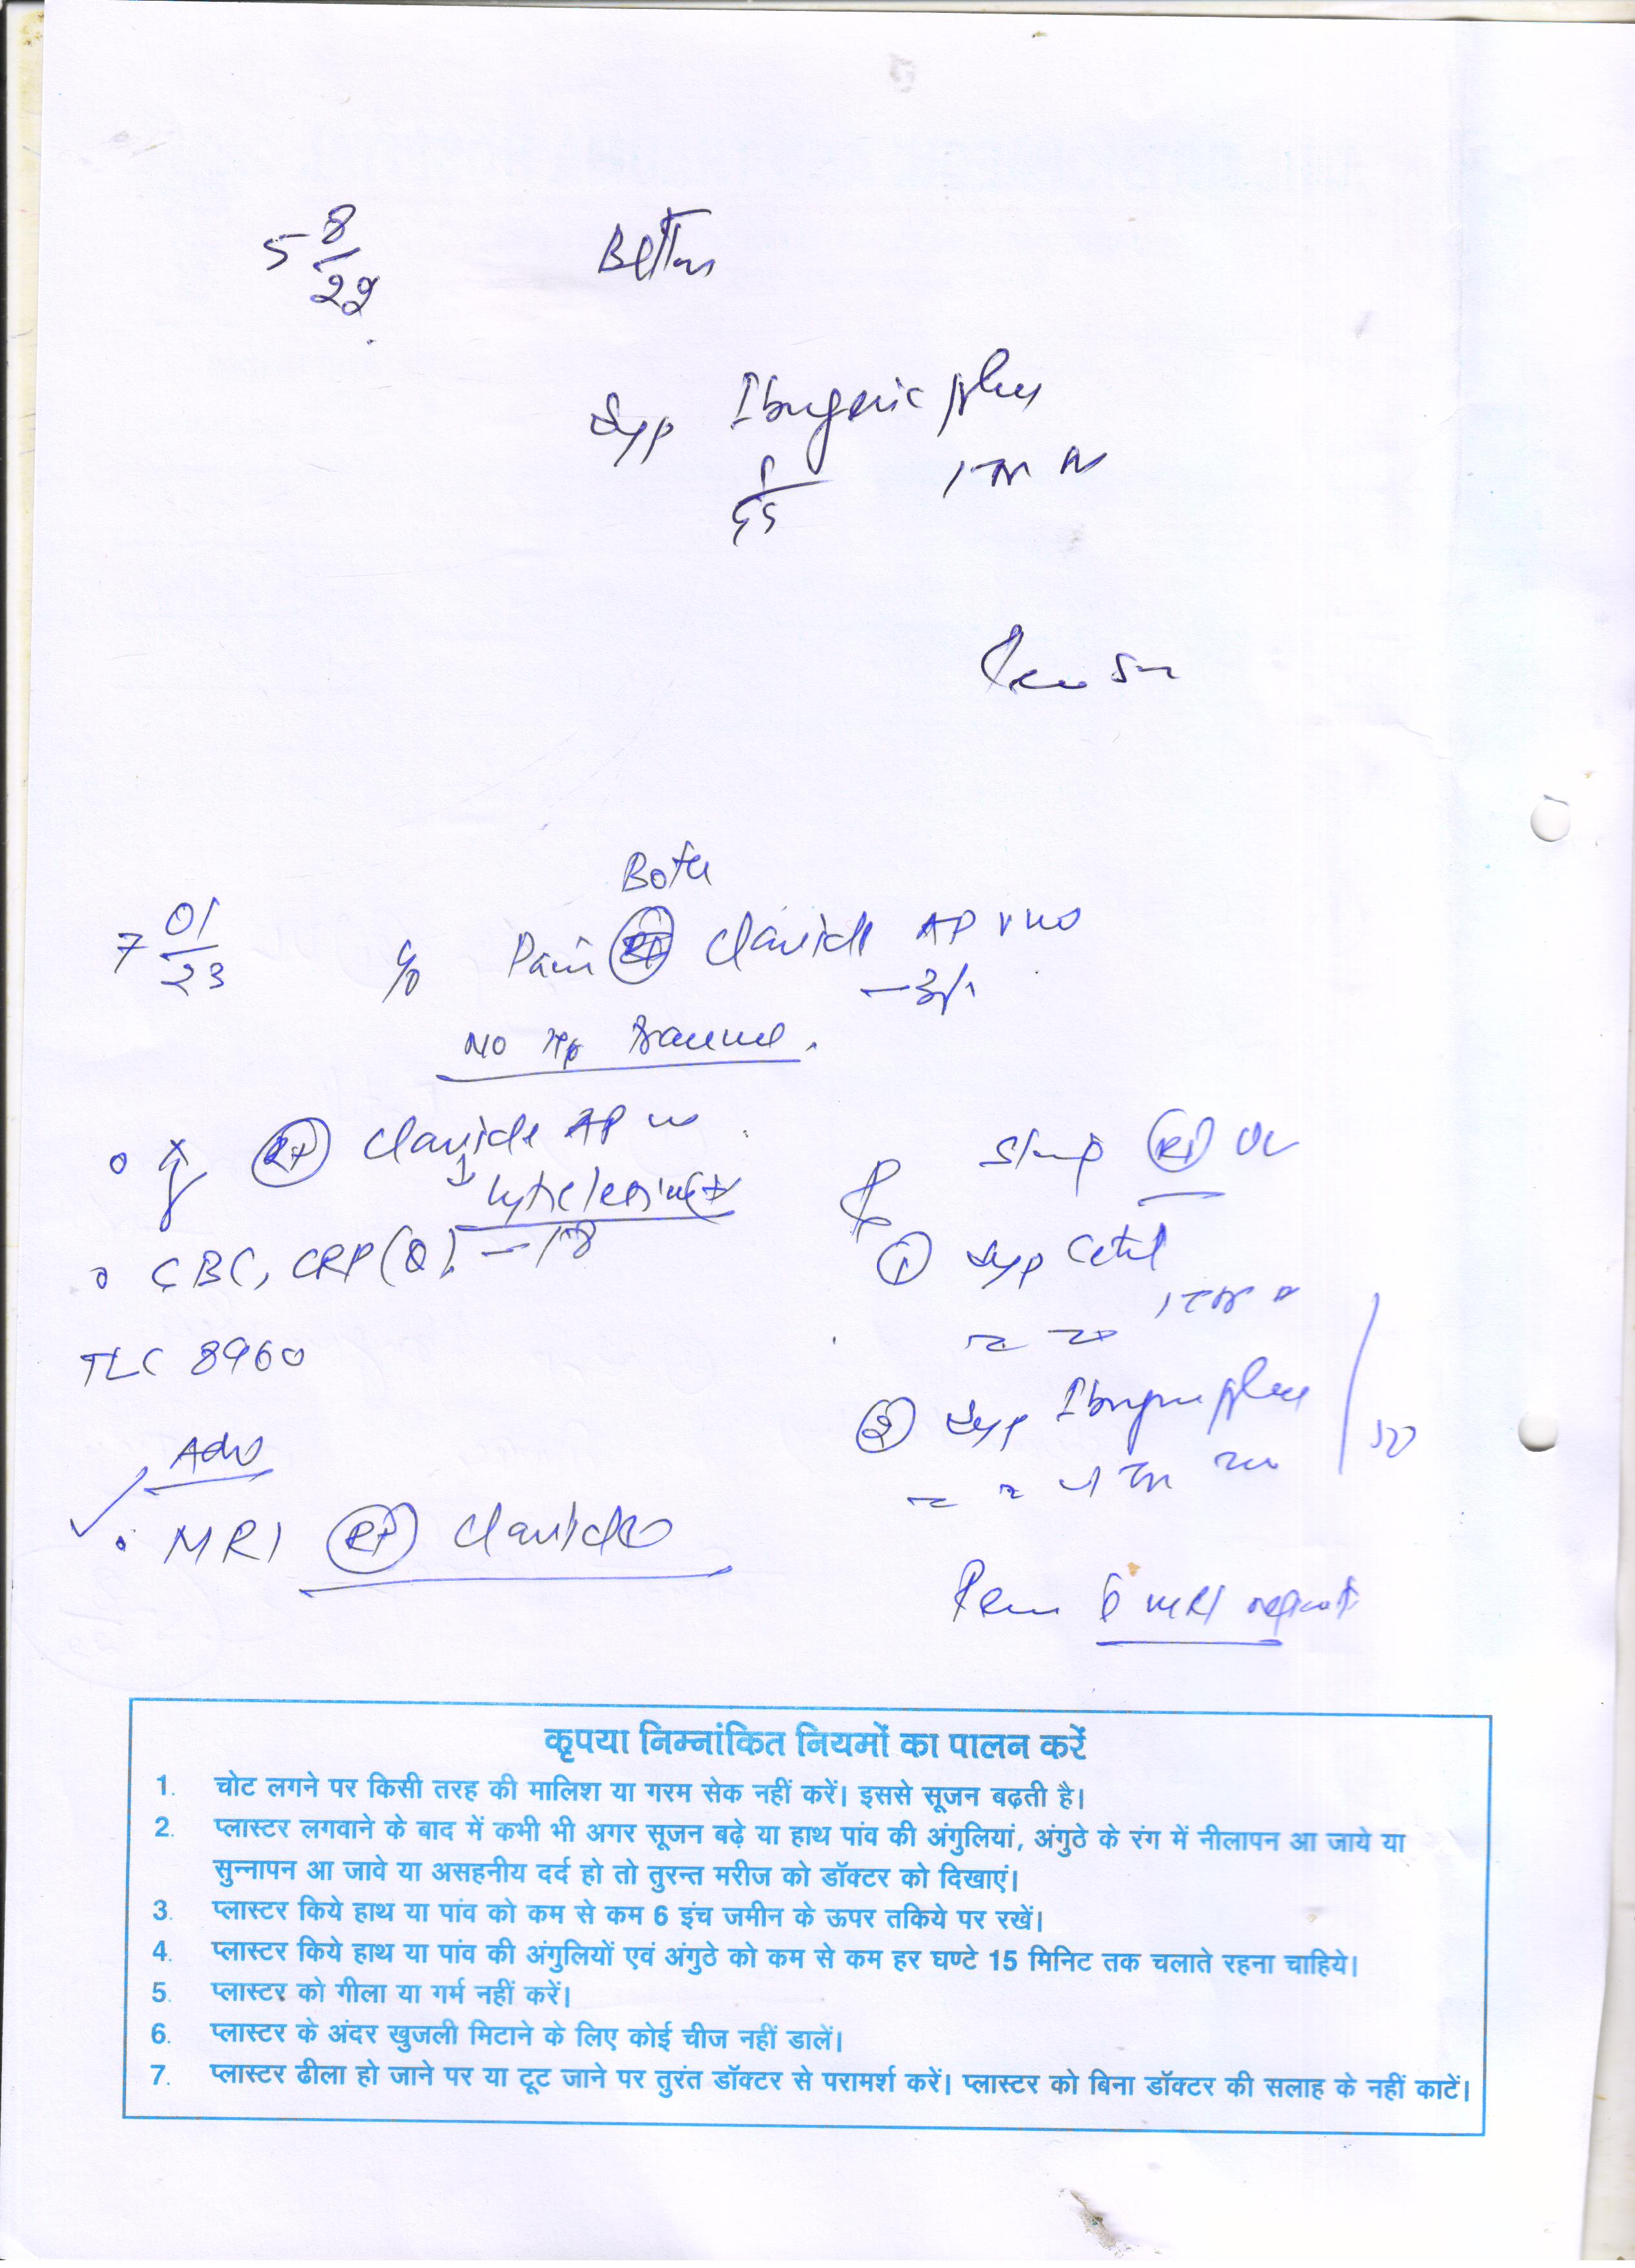 5 8/22
Better
Syp Ibugesic plus
Rev
7 01/23
Both
c/o Pain Rt Clavicle AP view
No H/o trauma.
Rt Clavicle AP
Sling Rt UL
CBC, CRP(Q) – 18
① Syp
TLC 8960
② Syp Ibugesic plus
Adv
MRI Rt Clavicle
Rev c̄ MRI report
कृपया निम्नांकित नियमों का पालन करें
1. चोट लगने पर किसी तरह की मालिश या गरम सेक नहीं करें। इससे सूजन बढ़ती है।
2. प्लास्टर लगवाने के बाद में कभी भी अगर सूजन बढ़े या हाथ पांव की अंगुलियां, अंगुठे के रंग में नीलापन आ जाये या
सुन्नापन आ जावे या असहनीय दर्द हो तो तुरन्त मरीज को डॉक्टर को दिखाएं।
3. प्लास्टर किये हाथ या पांव को कम से कम 6 इंच जमीन के ऊपर तकिये पर रखें।
4. प्लास्टर किये हाथ या पांव की अंगुलियों एवं अंगुठे को कम से कम हर घण्टे 15 मिनिट तक चलाते रहना चाहिये।
5. प्लास्टर को गीला या गर्म नहीं करें।
6. प्लास्टर के अंदर खुजली मिटाने के लिए कोई चीज नहीं डालें।
7. प्लास्टर ढीला हो जाने पर या टूट जाने पर तुरंत डॉक्टर से परामर्श करें। प्लास्टर को बिना डॉक्टर की सलाह के नहीं काटें।